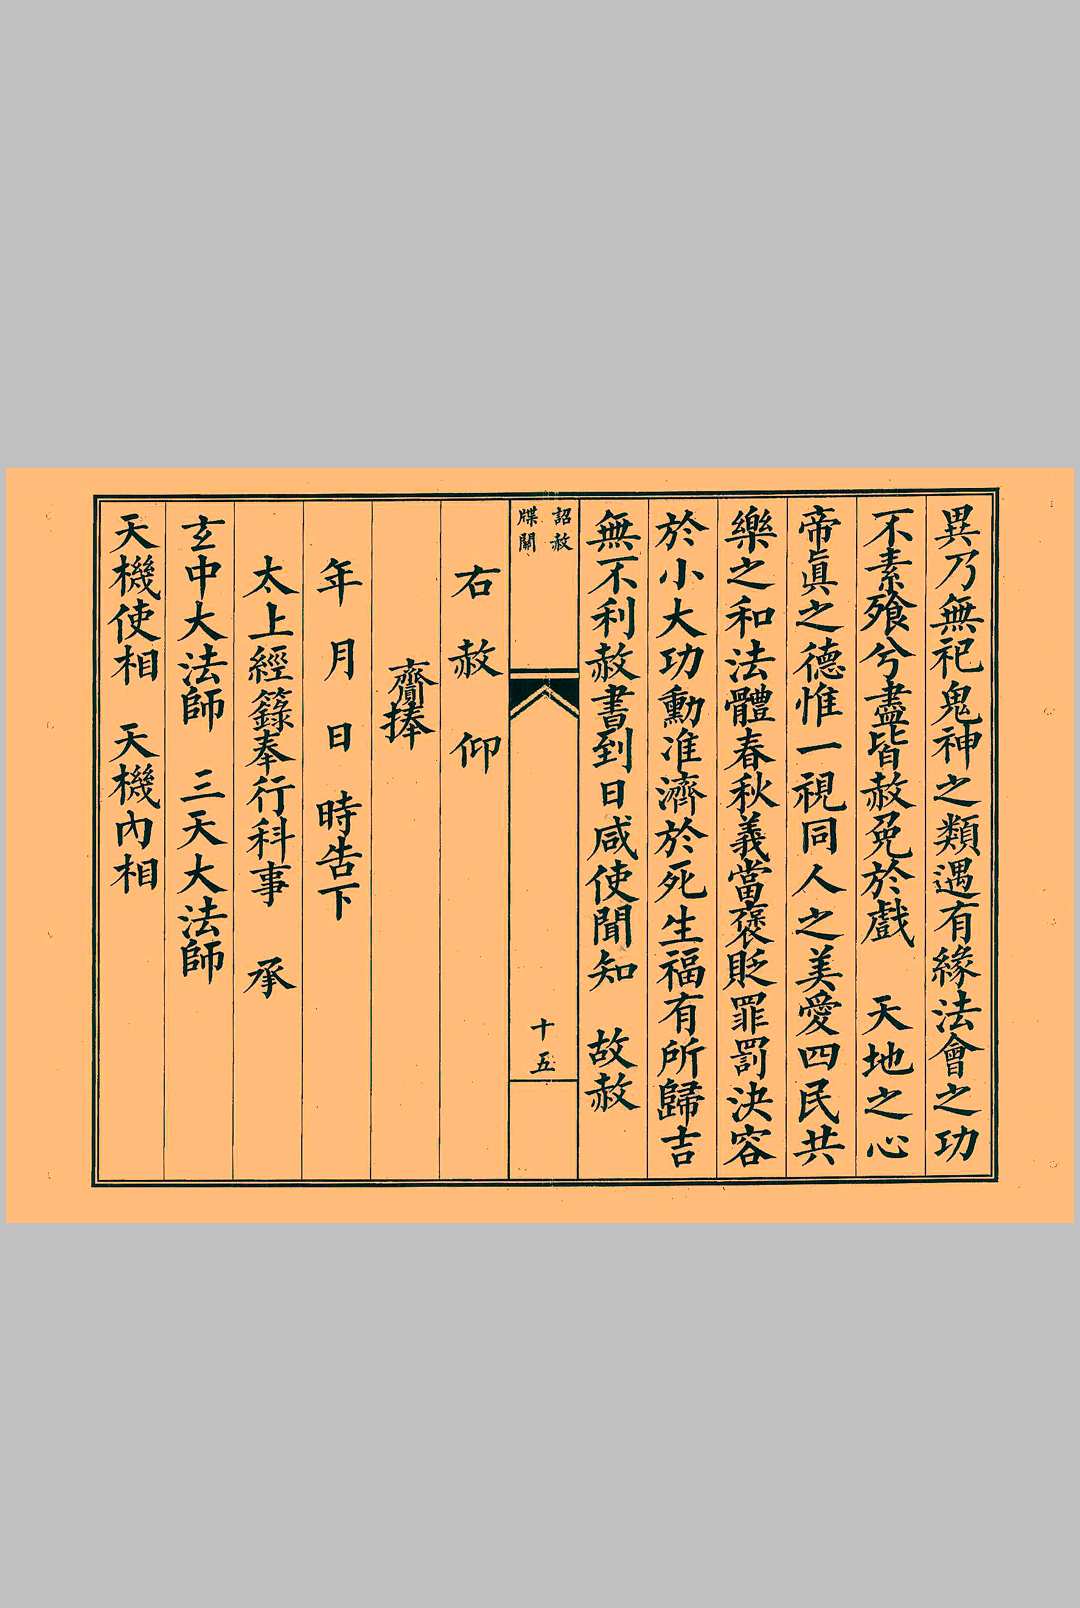 異乃無祀鬼神之類遇有緣法會之功
不素飱兮盡皆赦免於戲　天地之心
帝眞之德惟一視同人之美愛四民共
樂之和法體春秋義當褒貶罪罰決容
於小大功勳准濟於死生福有所歸吉
無不利赦書到日咸使聞知　故赦
詔赦
牒關
十五
右　赦　仰
齎捧
年　月　日　時告下
太上經籙奉行科事　承
玄中大法師　三天大法師
天機使相　天機內相